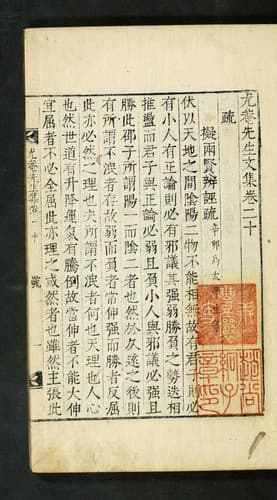 尤菴先生文集卷二十
疏
擬兩賢辨誣疏
伏以天地之間陰陽二物不能相無故有君子則必
有小人有正論則必有邪議其强弱勝負之勢迭相
推盪而君子與正論必弱且負小人與邪議必强且
勝此邵子所謂陽一而陰二者也然於久遠之後則
有所謂不泯者存故弱而負者當伸强而勝者反屈
此亦必然之理也夫所謂不泯者何也天理也人心
也然世道有升降運氣有騰倒故當伸者不能大伸
宜屈者不必全屈此亦理之或然者也雖然主張此
尤菴先生集卷二十
疏
一